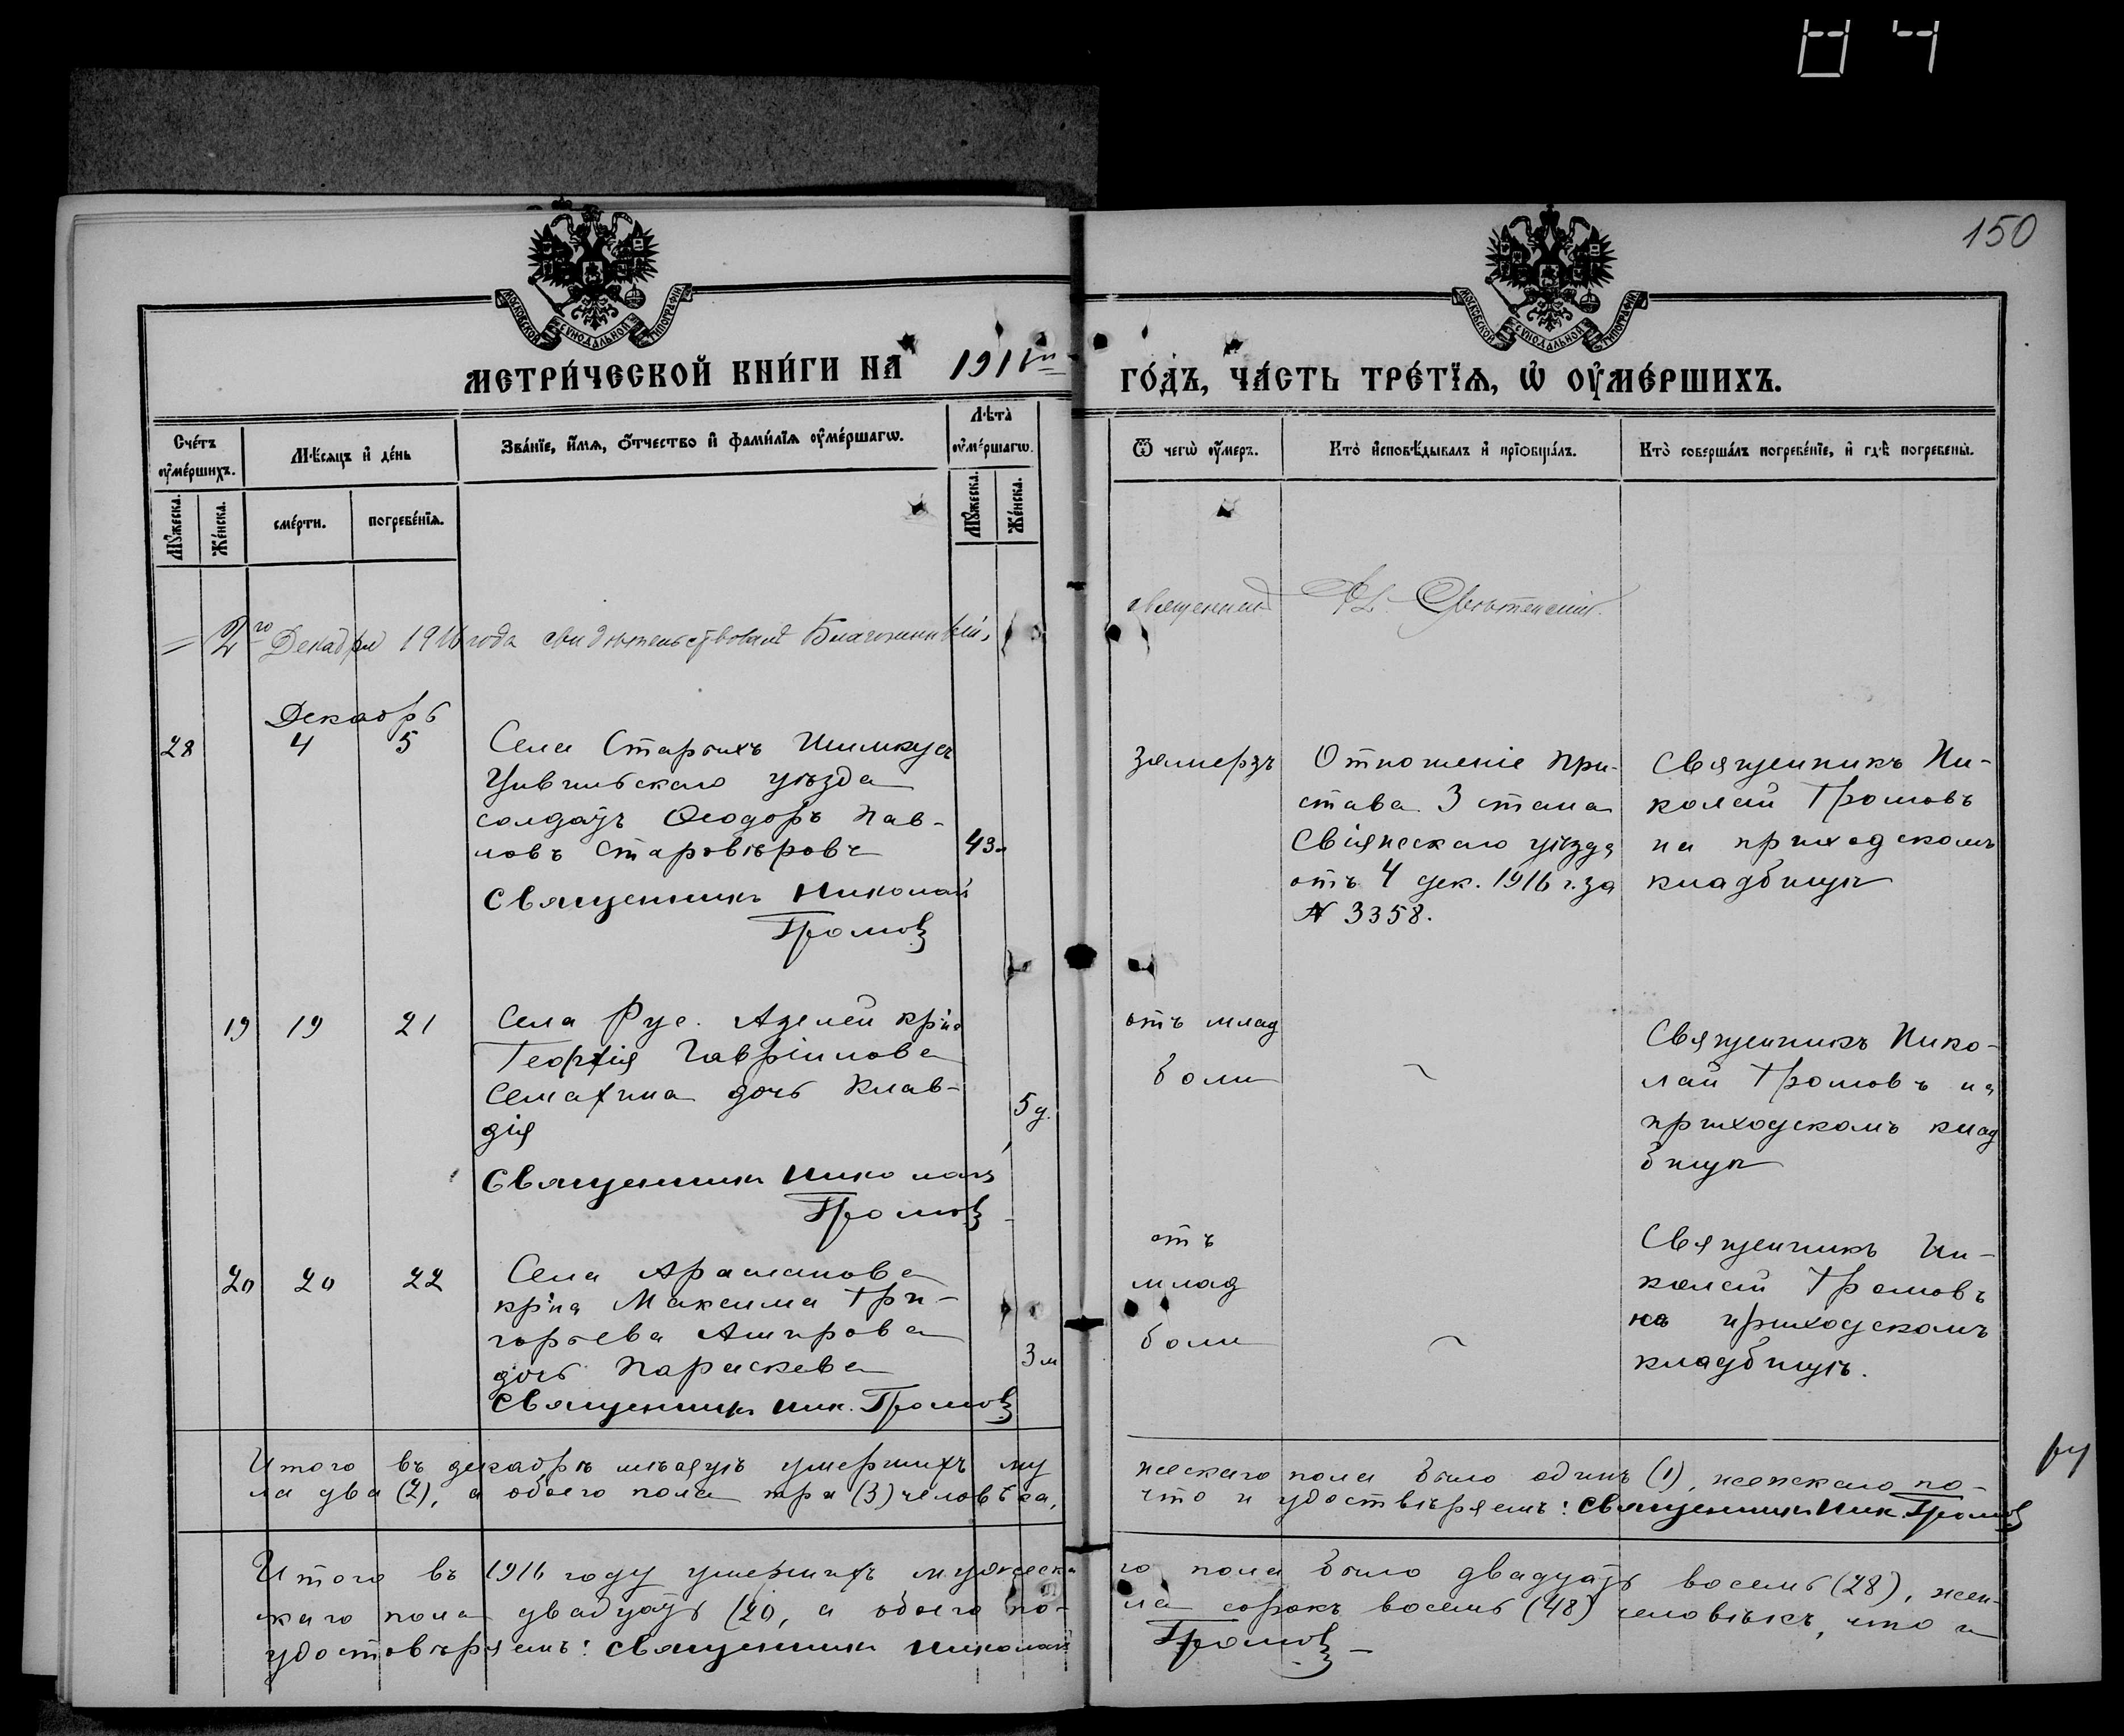 150
МОСКОВСКОЙ СѴНОДАЛЬНОЙ ТИПОГРАФІИ
МОСКОВСКОЙ СѴНОДАЛЬНОЙ ТИПОГРАФІИ
МЕТРИ́ЧЕСКОЙ КНИ́ГИ НА 1916 ГО́ДЪ, ЧА́СТЬ ТРЕ́ТЇѦ, Ѡ҆ ОУ҆МЕ́РШИХЪ.
Сче́тъ оу҆ме́ршихъ.
Мѣ́сяцъ и҆ де́нь
Зва́нїе, и҆́мѧ, ѻ҆́тчество и҆ фами́лїѧ оу҆ме́ршагѡ.
Лѣта̀ оу҆ме́ршагѡ.
Ѿ чегѡ̀ оу҆́меръ.
Кто̀ и҆сповѣ́дывалъ и҆ прїѻбща́лъ.
Кто̀ соверша́лъ погребе́нїе, и҆ гдѣ̀ погребены̀.
Мꙋ́жеска.
Же́нска.
сме́рти.
погребе́нїѧ.
Мꙋ́жеска.
Же́нска.
2го Декабря 1916 года свидѣтельствовалъ Благочинный, священникъ
Декабрь
28 4 5 Села Старыхъ Шимкусъ
Цивильскаго уѣзда
солдатъ Ѳеодоръ Пав-
ловъ Старовѣровъ 43
Священникъ Николай
Громовъ
замерзъ
Отношеніе при-
става 3 стана
Свіяжскаго уѣзда
отъ 4 дек. 1916 г. за
N 3358.
Священникъ Ни-
колай Громовъ
на приходскомъ
кладбищѣ
19 19 21 Села Рус. Азелей кр-на
Георгія Гавріилова
Семагина дочь Клав-
дія 5 д.
Священникъ Николай
Громовъ
отъ млад
боли
Священникъ Нико-
лай Громовъ на
приходскомъ клад
бищѣ
20 20 22 Села Арасланова
кр-на Максима Гри-
горьева Аширова
дочь Параскева 3 м
Священникъ Ник. Громовъ
отъ
млад
боли
Священникъ Ни-
колай Громовъ
на приходскомъ
кладбищѣ.
Итого въ декабрѣ мѣсяцѣ умершихъ му жескаго пола было одинъ (1), женскаго по-
ла два (2), а обоего пола три (3) человѣка, что и удостовѣряемъ: Священникъ Ник. Громовъ
Итого въ 1916 году умершихъ мужеска го пола было двадцать восемь (28), жен-
скаго пола двадцать (20, а обоего по- ла сорокъ восемь (48) человѣкъ, что и
удостовѣряемъ: Священникъ Николай Громовъ